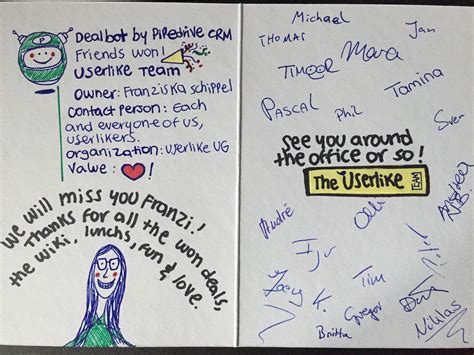 P
Dealbot by Pipedrive CRM
Friends won!
Userlike Team
Owner: Franziska Schippel
Contact person: Each
and everyone of us,
userlikers.
organization: Userlike UG
Value:
We will miss you Franzi!
Thanks for all the won deals,
the wiki, lunchs, fun & love.
Michael
Thomas
Jan
Timoor
Mara
Tamina
Pascal
Phil
Sven
see you around
the office or so!
The Userlike
TEAM
André
Olli
Tim
K.
Gregor
Britta
Niklas